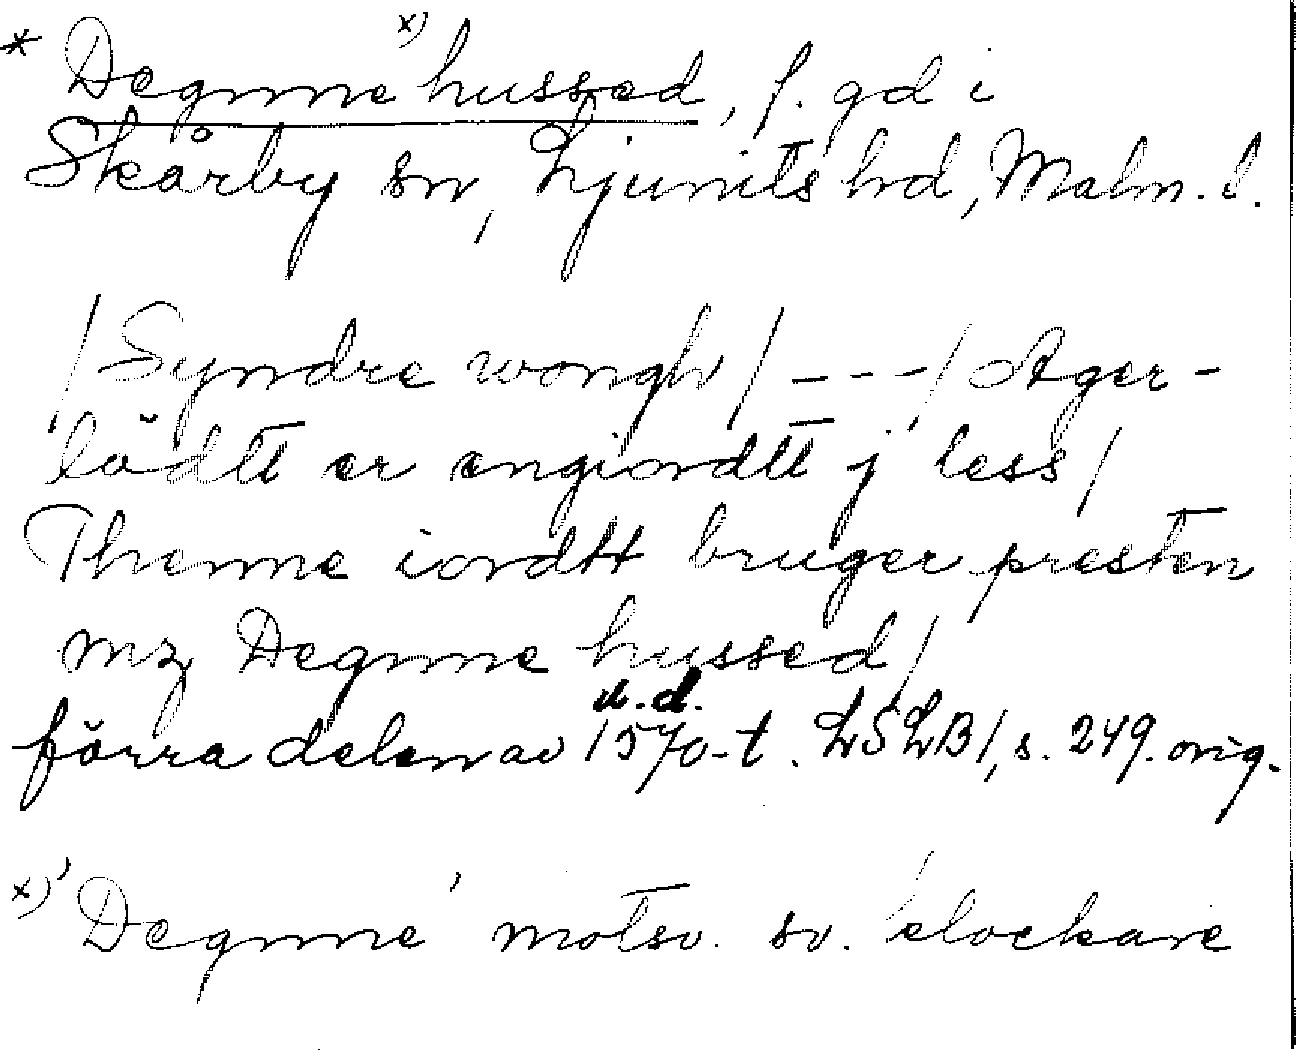 * Degnne x) hussed, f. gd i
Skårby sn, Ljunits hd, Malm. l.
/ Syndre wongh / - - - / Ager-
lödtt er engiordtt j less /
Thenne iordtt bruger presten
mz Degnne hussed /
u.d.
förra delen av 1570-t. LSLB 1, s. 249. orig.
x) 'Degnne' motsv. sv. 'klockare